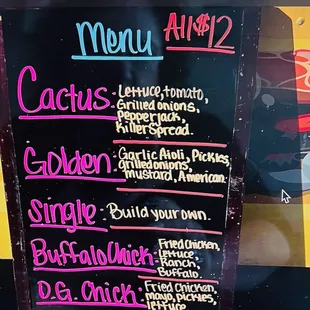 Menu All $12
Cactus - Lettuce, tomato,
Grilled onions,
Pepperjack,
Killer Spread.
Golden - Garlic Aioli, Pickles,
grilled onions,
Mustard, American.
Single - Build your own.
Buffalo Chick - Fried Chicken,
Lettuce,
Ranch,
Buffalo.
O.G. Chick - Fried Chicken,
mayo, pickles,
lettuce